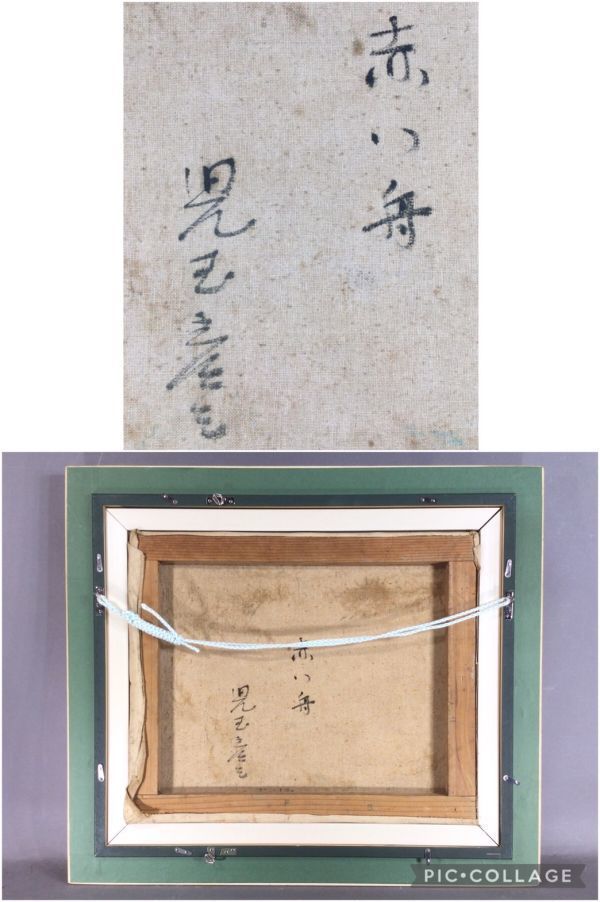 赤い舟
児玉彦三
赤い舟
児玉彦三
PIC•COLLAGE